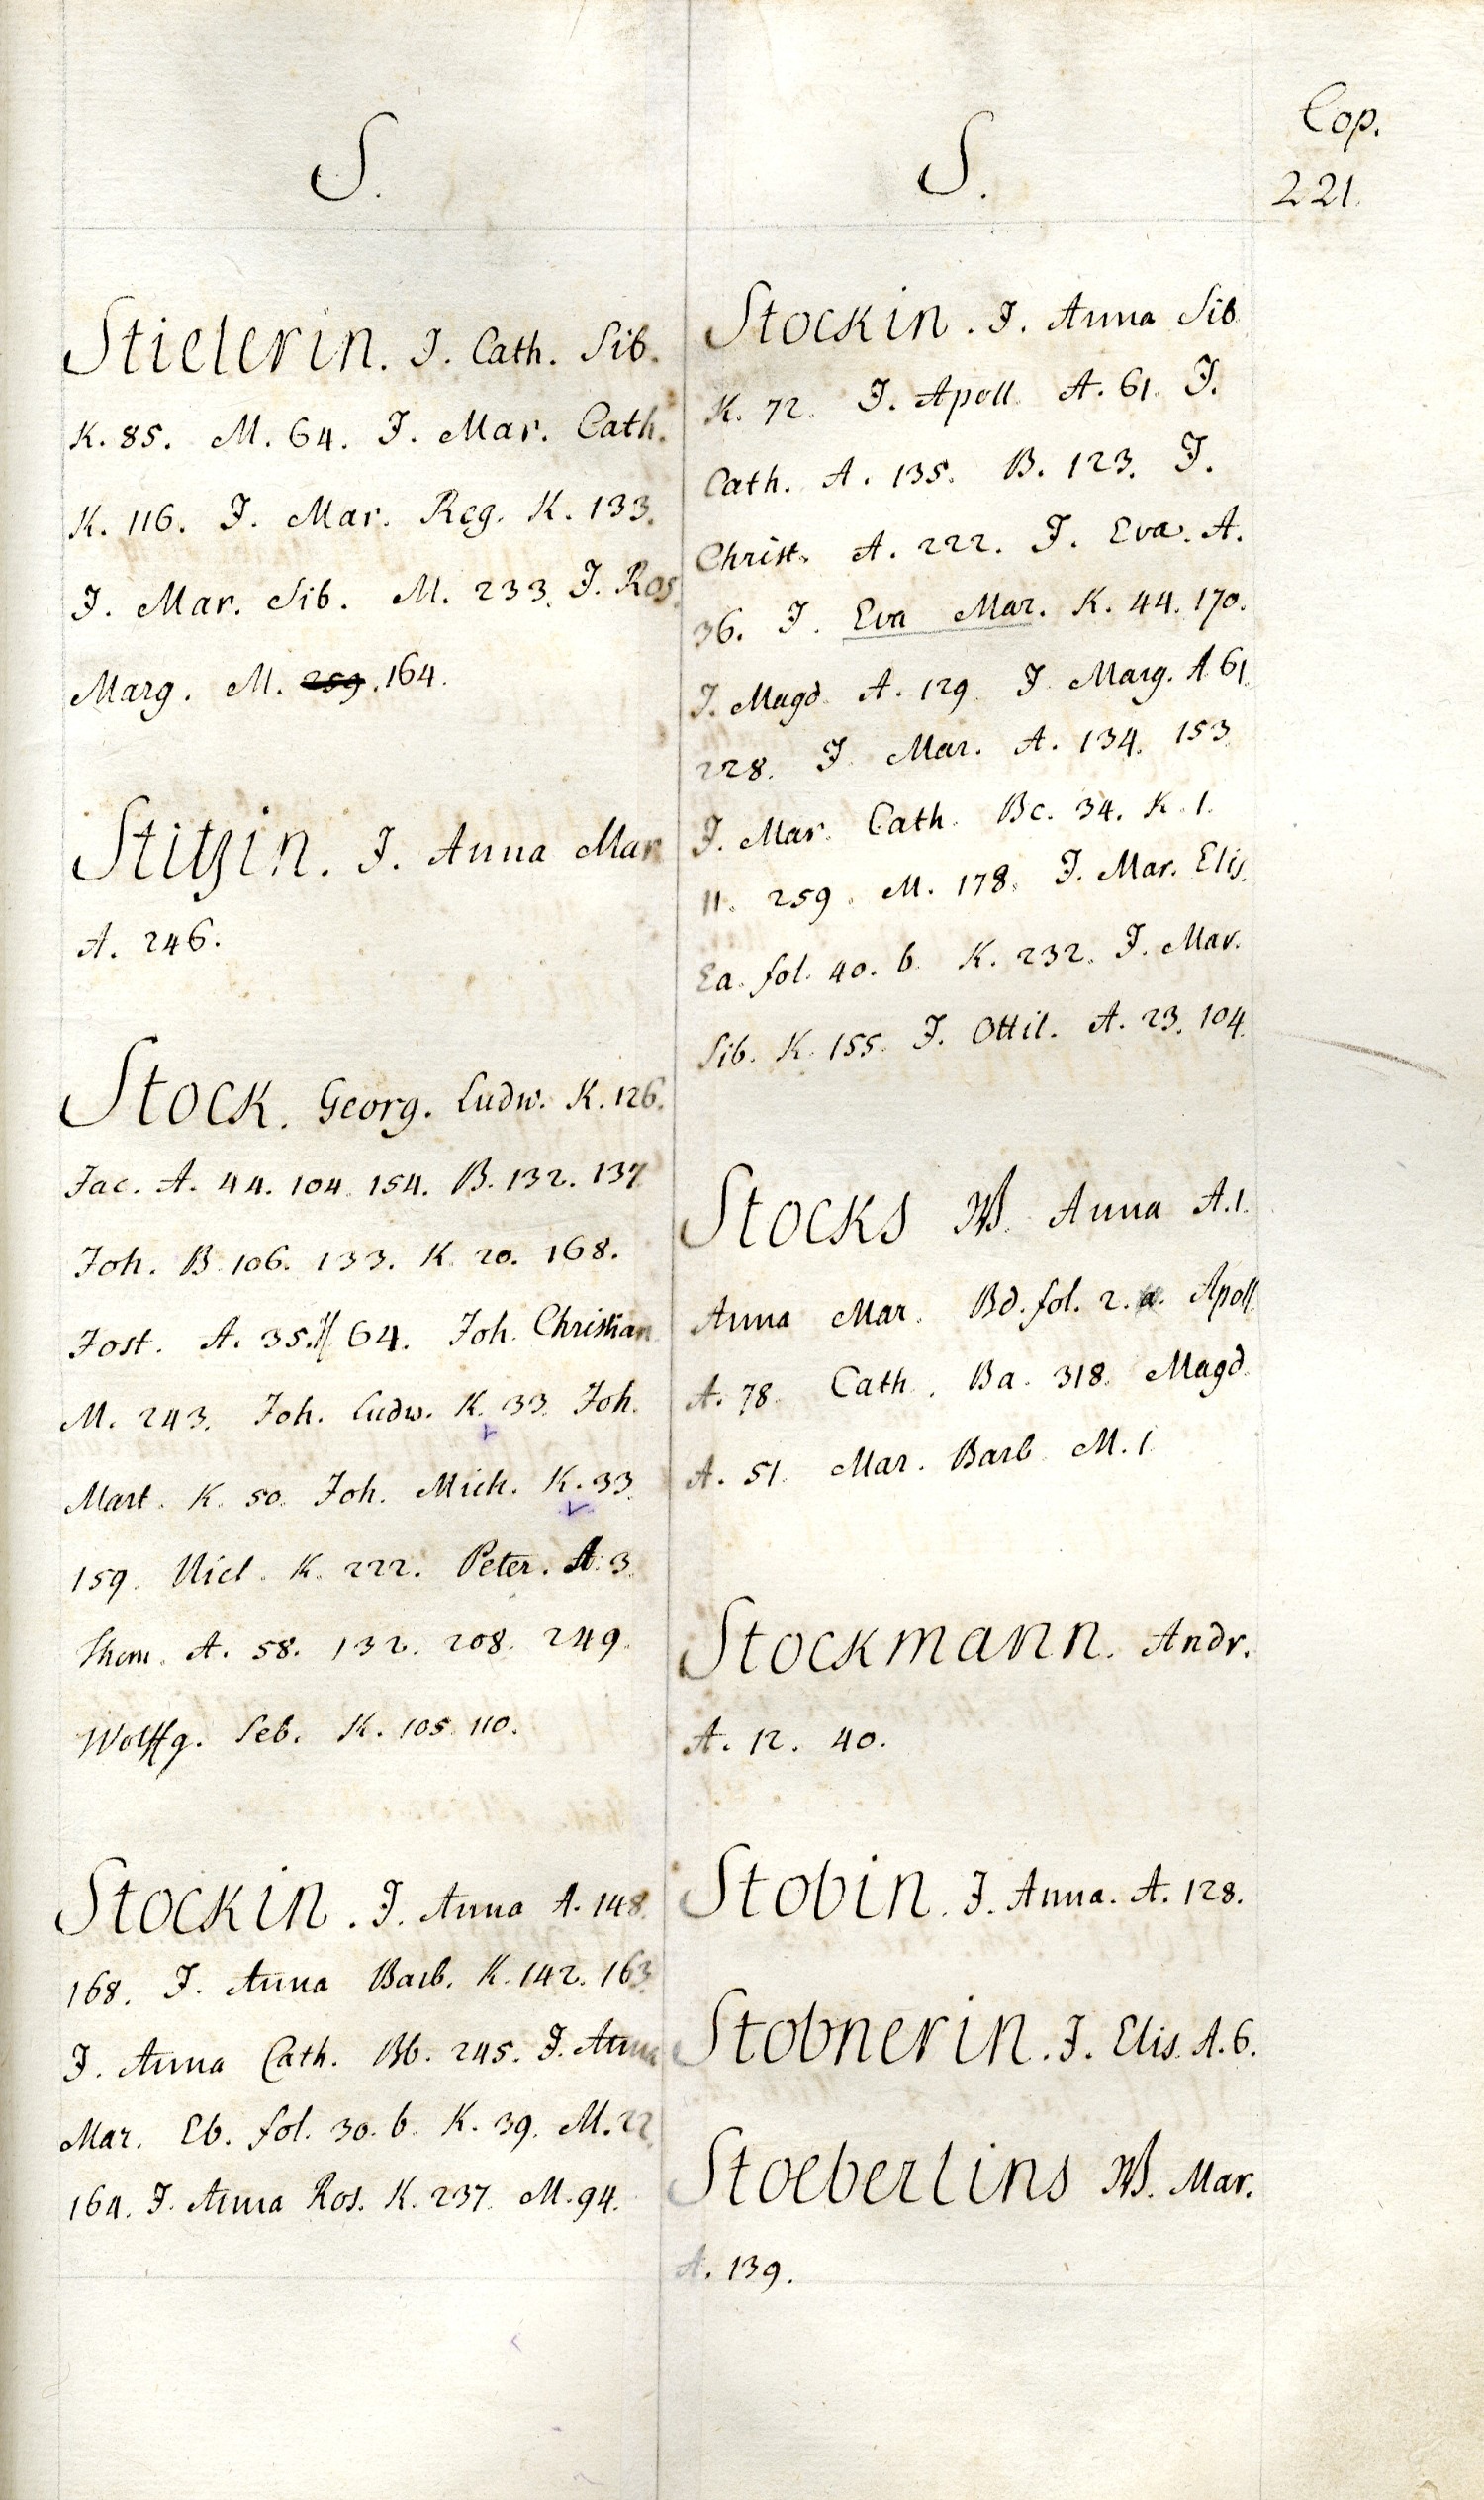 Cop.
221.
S.
Stielerin. J. Cath. Sib.
K. 85. M. 64. J. Mar. Cath.
K. 116. J. Mar. Reg. K. 133.
J. Mar. Sib. M. 233. J. Ros.
Marg. M. 259. 164.
Stitzin. J. Anna Mar
A. 246.
Stock. Georg. Ludw. K. 126.
Jac. A. 44. 104. 154. B. 132. 137
Joh. B. 106. 133. K. 20. 168.
Jost. A. 35. 64. Joh. Christian
M. 243. Joh. Ludw. K. 33. Joh.
Mart. K. 50. Joh. Mich. K. 33.
159. Nicl. K. 222. Peter. A. 3.
Thom. A. 58. 132. 208. 249.
Wolffg. Seb. K. 105. 110.
Stockin. J. Anna A. 148.
168. J. Anna Barb. K. 142. 163.
J. Anna Cath. Bb. 245. J. Anna
Mar. Eb. fol. 30. b. K. 39. M. 22.
164. J. Anna Ros. K. 237. M. 94.
S.
Stockin. J. Anna Sib
K. 72. J. Apoll. A. 61. J.
Cath. A. 135. B. 123. J.
Christ. A. 222. J. Eva. A.
36. J. Eva Mar. K. 44. 170.
J. Magd. A. 129. J. Marg. A 61.
228. J. Mar. A. 134. 153.
J. Mar. Cath. Bc. 34. K. 1.
11. 259. M. 178. J. Mar. Elis.
Ea. fol. 40. b. K. 232. J. Mar.
Sib. K. 155. J. Ottil. A. 23. 104.
Stocks W. Anna A. 1.
Anna Mar. Bd. fol. 2. a. Apoll.
A. 78. Cath. Ba. 318. Magd.
A. 51. Mar. Barb. M. 1.
Stockmann. Andr.
A. 12. 40.
Stobin. J. Anna. A. 128.
Stobnerin. J. Elis. A. 6.
Stoeberlins W. Mar.
A. 139.